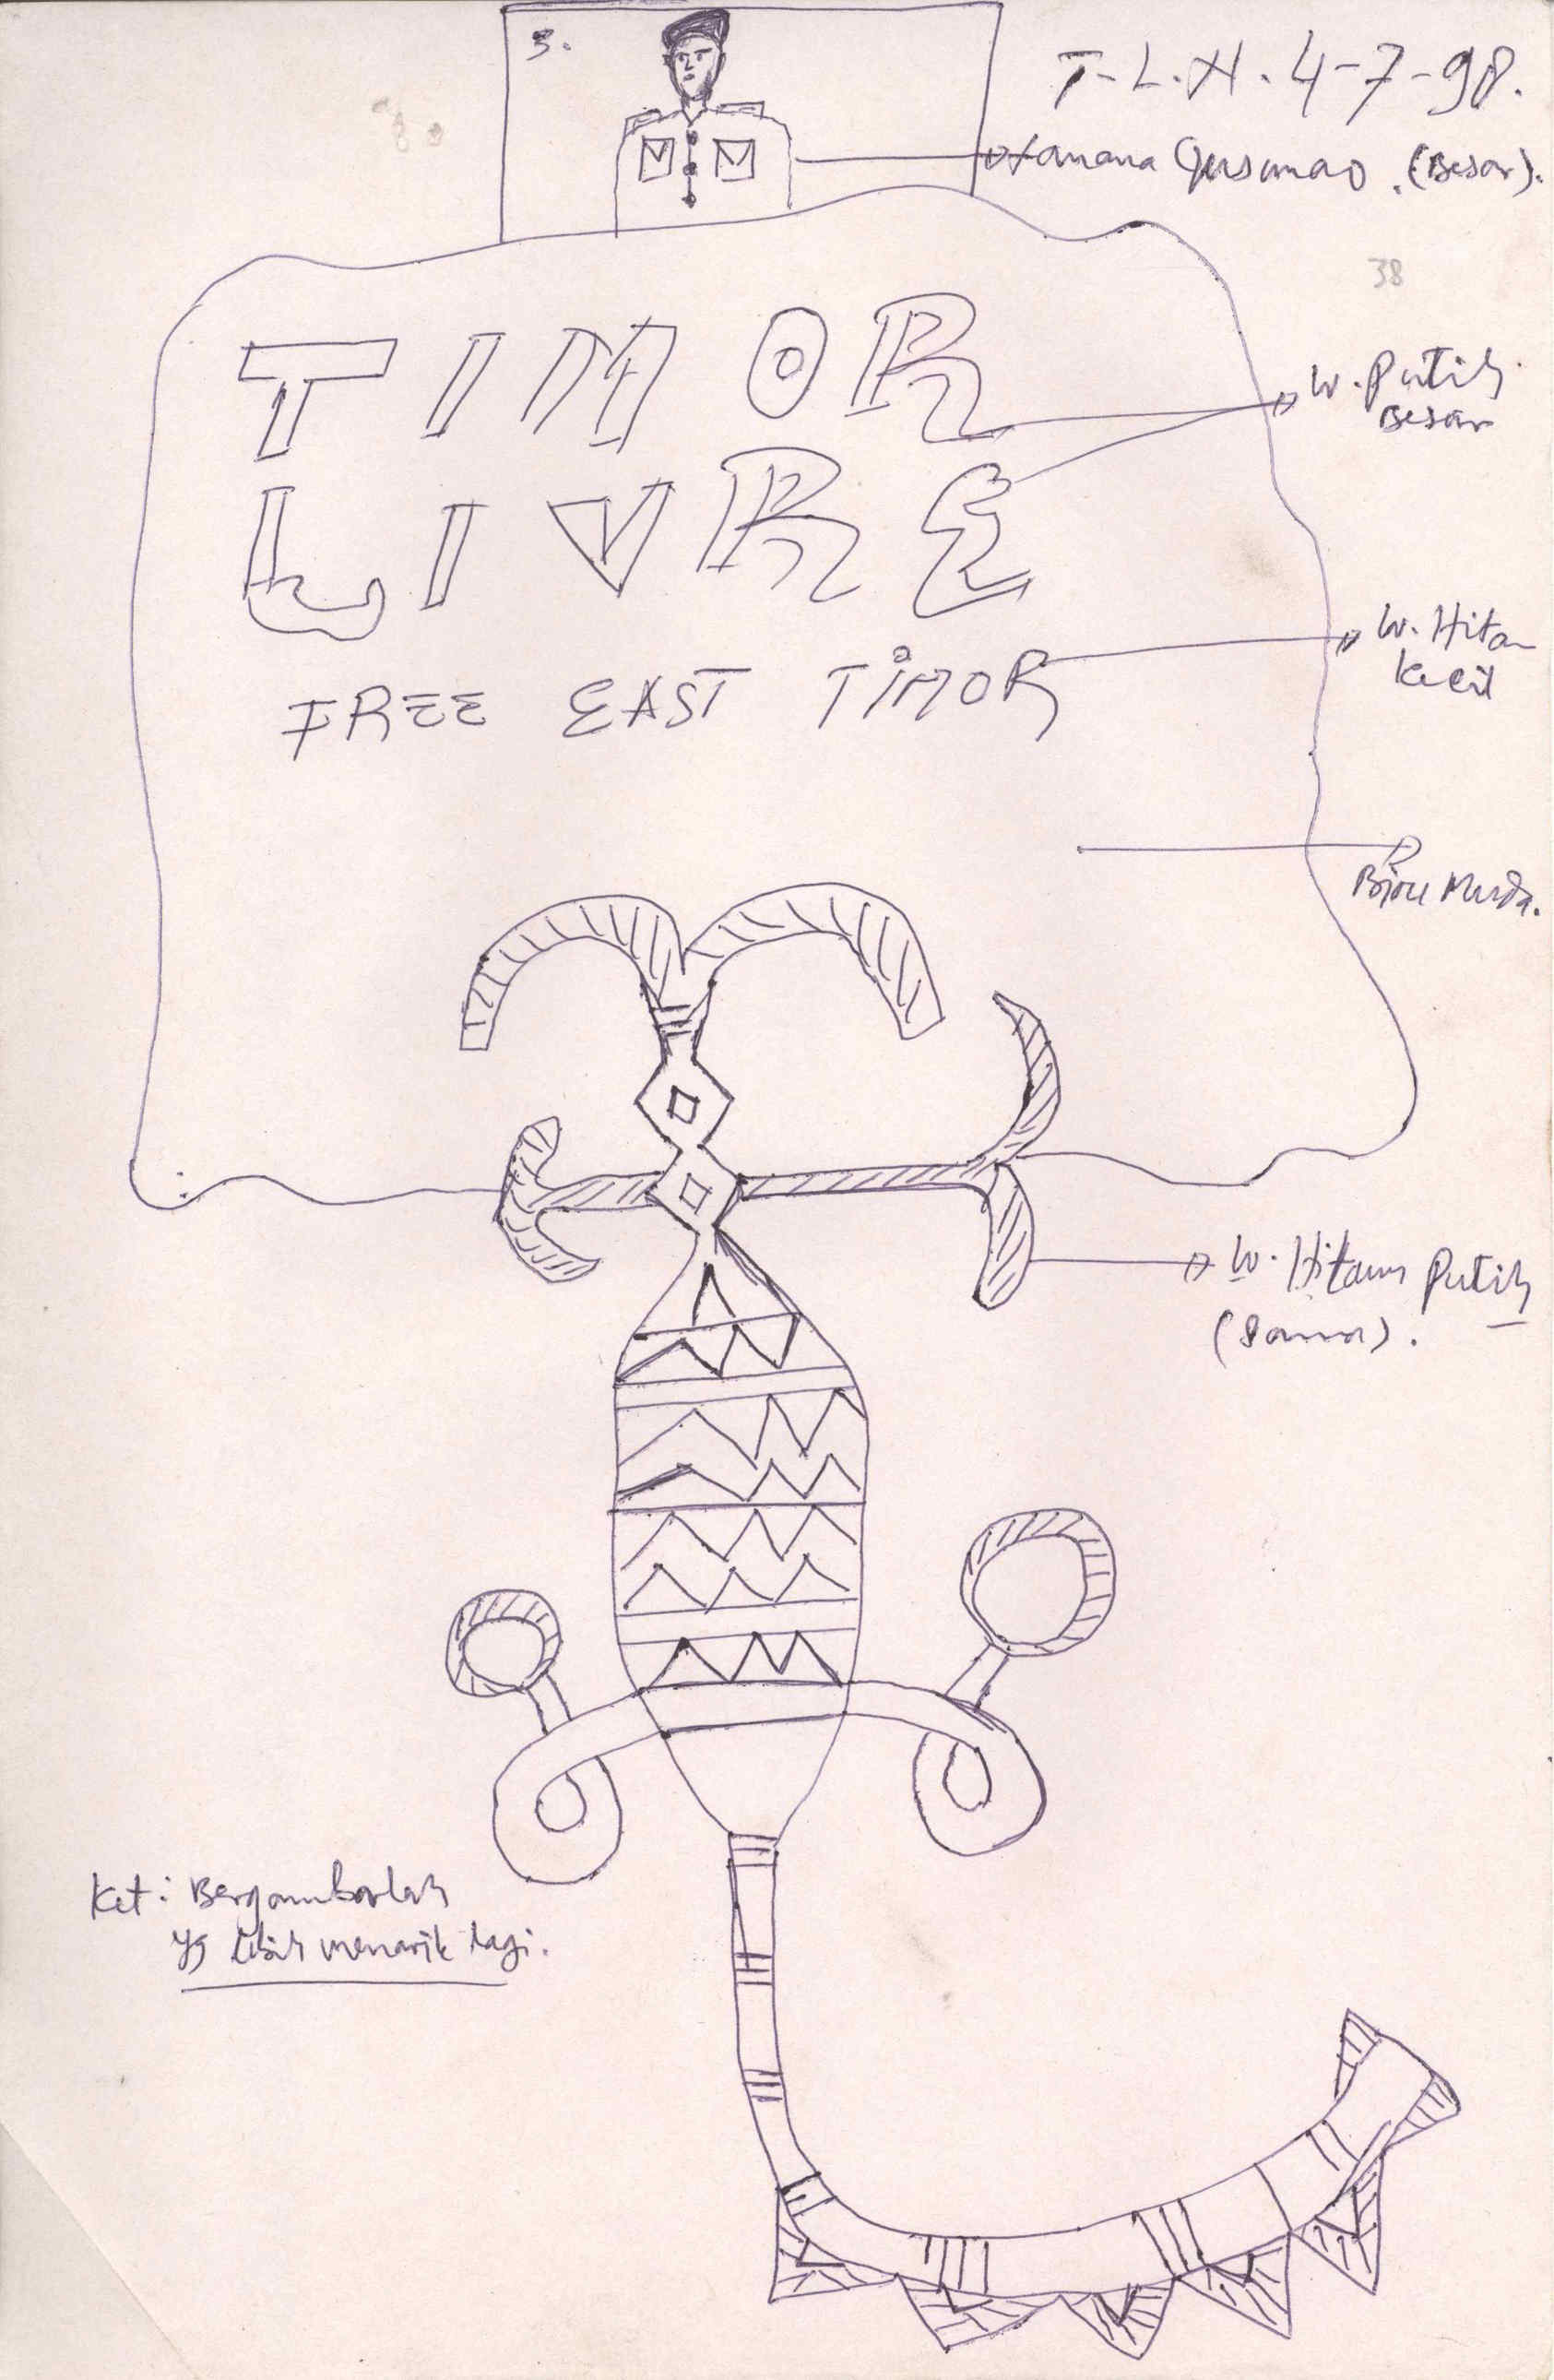 3.
T-L.H. 4-7-98.
Xanana Gusmao. (Besar).
38
TIMOR
W. Putih
Besar
LIVRE
W. Hitam
Kecil
FREE EAST TIMOR
Biru Muda.
W. Hitam Putih
(Sama).
Ket: Bergambarlah
yg lebih menarik lagi.